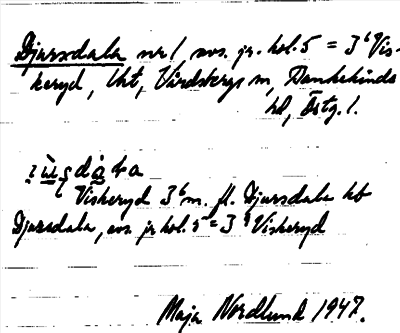 Djursdala nr 1 avs. jr. kol. 5 = 3⁶⁹ Vis-
keryd, Uht, Vårdsbergs sn, Bankekinds
hd, Östg. l.
Viskeryd 3⁶ m. fl. Djursdala hb
Djursdala, avs jr kol. 5 = 3⁹ Viskeryd
Maja Nordlund 1947.